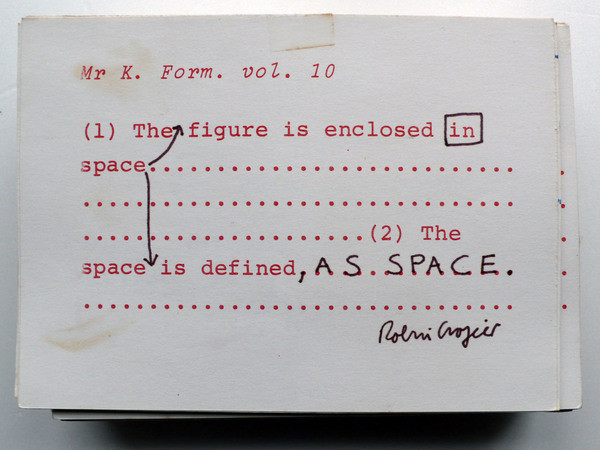 Mr K. Form. vol. 10
(1) The figure is enclosed in
space.............................
..................................
......................(2) The
space is defined, AS SPACE.
..................................
Robin Crozier